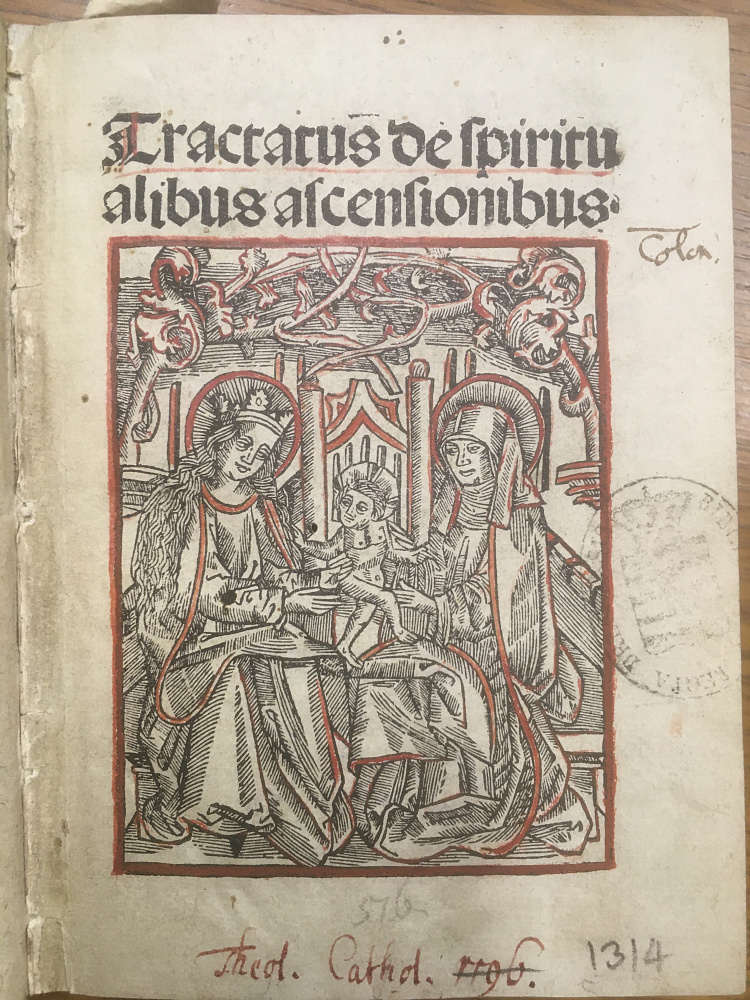 Tractatus̄ de ſpiritu
alibus aſcenſionibus.
Colon.
576
Theol. Cathol. 1196. 1314